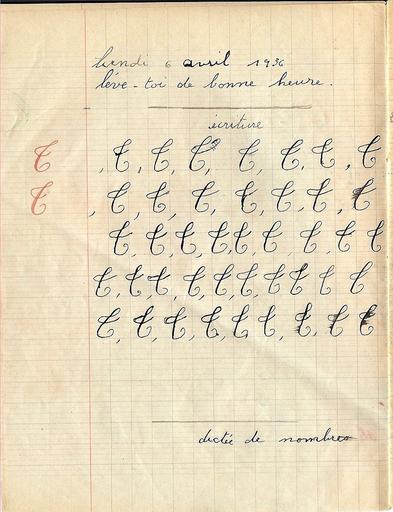 lundi 6 avril 1936
lève-toi de bonne heure.
écriture
T , T , T , T , T , T , T , T , T
T , T , T , T , T , T , T , T , T
T , T , T , T , T , T , T , T , T
T , T , T , T , T , T , T , T , T
T , T , T , T , T , T , T , T , T
dictée de nombres